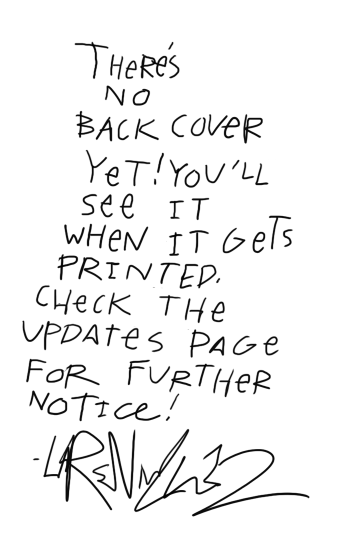 THeRe's
NO
BACK COVeR
YeT! YOU'LL
See IT
WHeN IT GeTs
PRINTED.
CHeCK THe
UPDATes PAGe
FOR FURTHeR
NOTICe!